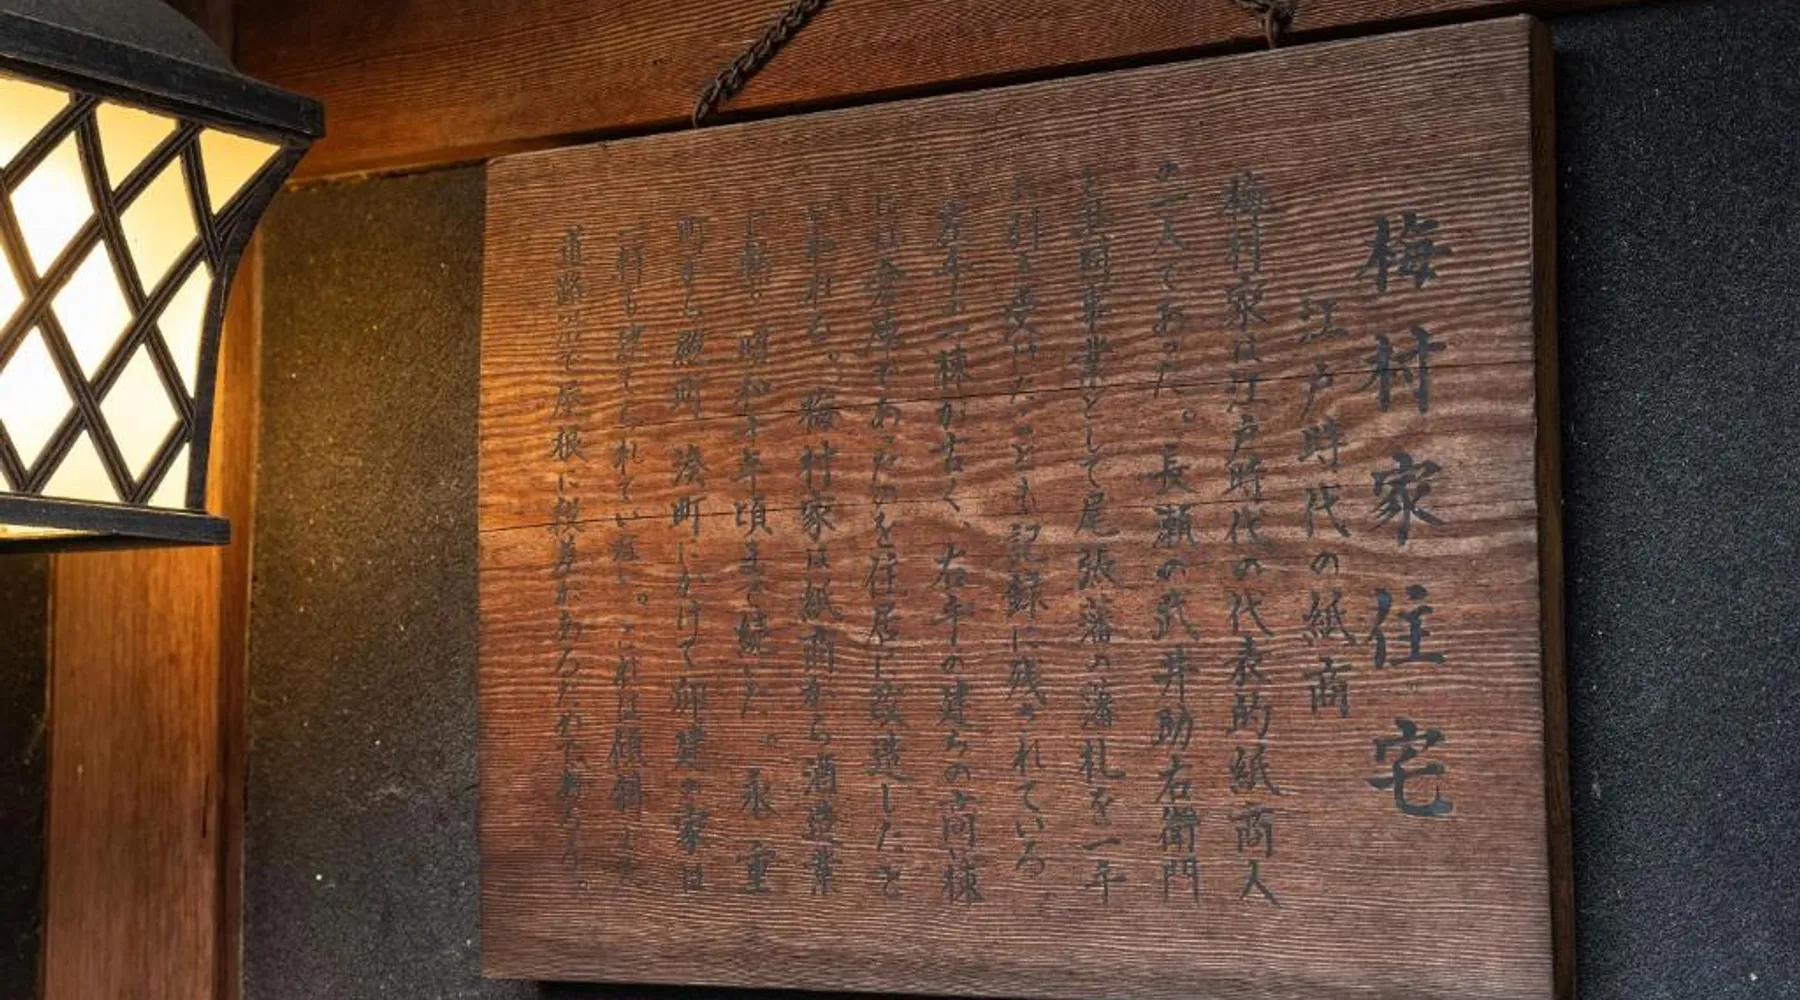 梅村家住宅
江戸時代の紙商
梅村家は江戸時代の代表的紙商人
の一人であった。長瀬の武井助右衛門
と共同事業として尾張藩の藩札を一手
に引き受けたことも記録に残されている。
家は二棟が古く、右手の建ちの高い棟
は倉庫であったのを住居に改造したと
いわれる。梅村家は紙商から酒造業
に転じ昭和十年頃まで続いた。永重
町から殿町、湊町にかけて御建の家は
斜も建てられている。これは傾斜した
道路沿で屋根に段差があるためである。